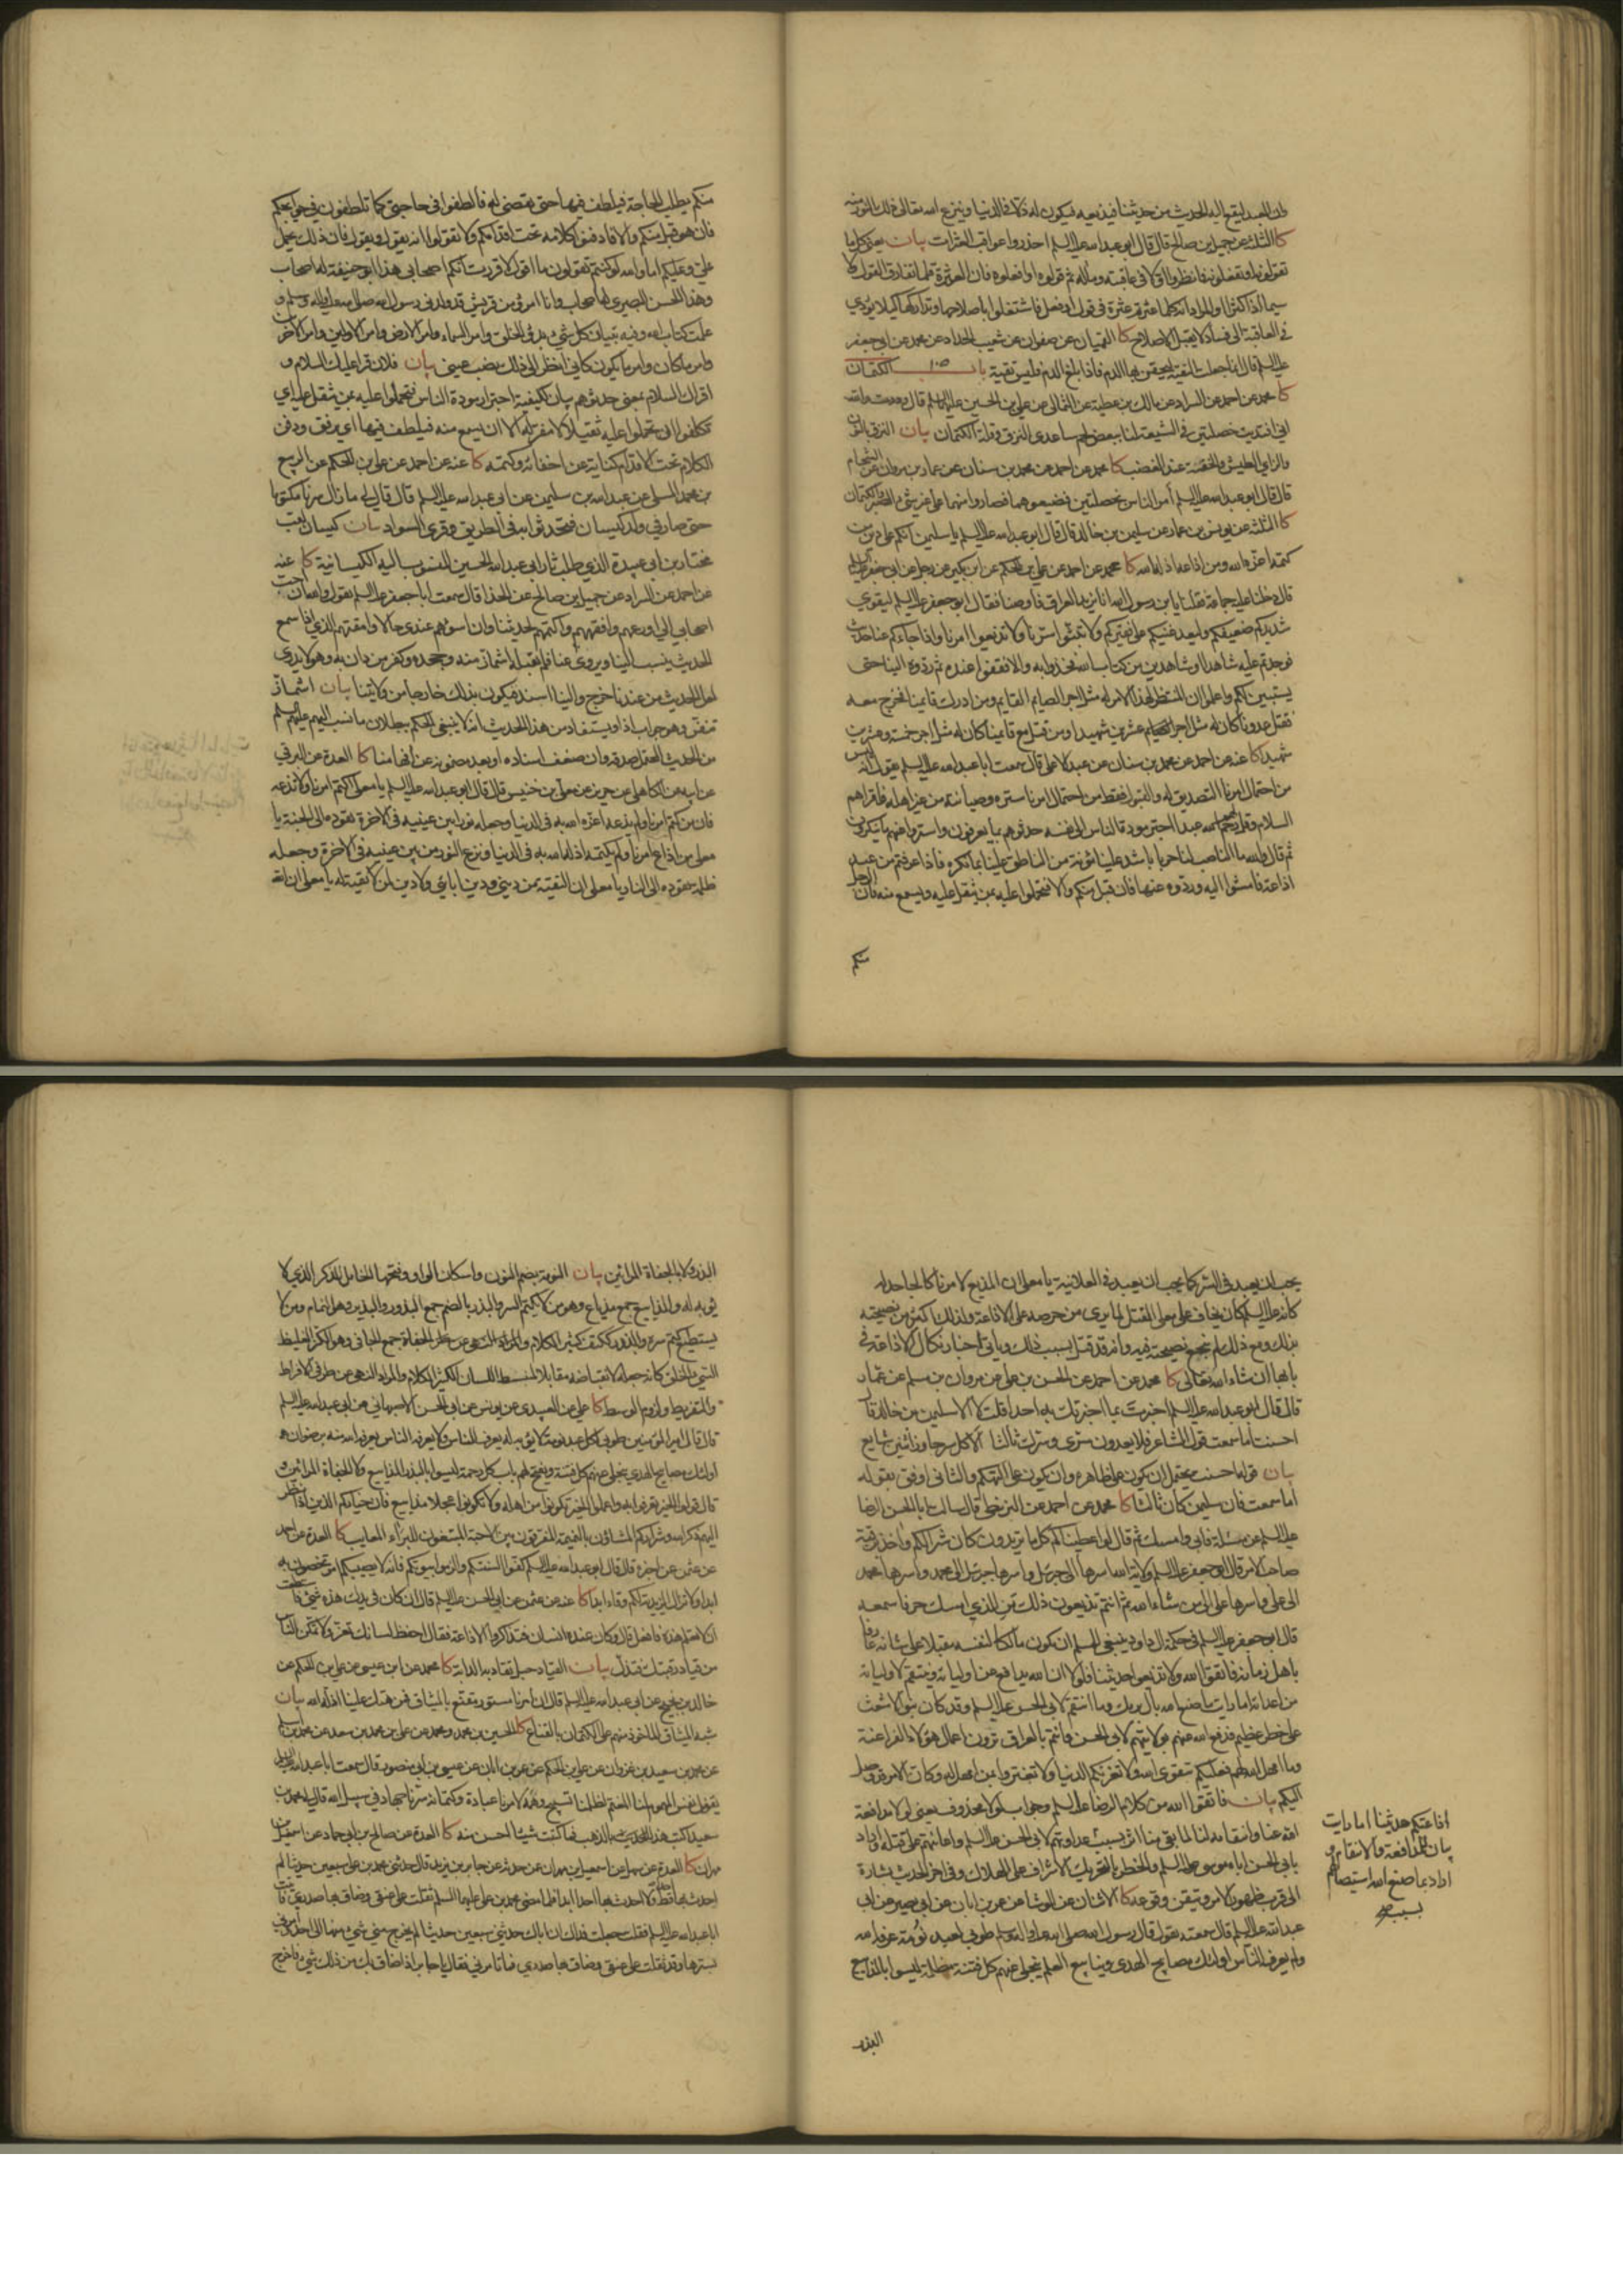 وان العبد ليقع اليه الحديث من حديثنا فيذيعه فيكون له ذلا في الدنيا وينزع الله تعالى ذلك النور منه
كا الثلثة عن جميل بن صالح قال قال ابو عبد الله عليه السلم احذروا عواقب العثرات بيان يعني كل ما
تقولونه او تفعلونه فانظروا اولا في عاقبته ومآله ثم قولوه او افعلوه فان العثرة قلما تفارق القول
سيما اذا كثرا او المراد انه كلما عثرتم عثرة في قول او فعل فاشتغلوا باصلاحها وتداركها كيلا يؤدي
في العاقبة الى فساد لا يقبل الاصلاح كا القميان عن صفوان عن شعيب الحداد عن محمد عن ابي جعفر
عليه السلم قال انما جعلت التقية ليحقن بها الدم فاذا بلغ الدم فليس تقية باب الكتمان
كا محمد عن احمد عن السراد عن مالك بن عطية عن الثمالي عن علي بن الحسين عليهما السلم قال وددت والله
اني افتديت خصلتين في الشيعة لنا ببعض لحم ساعدي النزق وقلة الكتمان بيان النزق بالنون
والزاي الطيش والخفة عند الغضب كا محمد عن احمد عن محمد بن سنان عن عمار بن مروان عن الشحام
قال قال ابو عبد الله عليه السلم امر الناس بخصلتين فضيعوهما فصاروا منهما على غير شيء الصبر والكتمان
كا الثلثة عن يونس بن عمار عن سليمن بن خالد قال قال ابو عبد الله عليه السلم يا سليمن انكم على دين من
كتمه اعزه الله ومن اذاعه اذله الله كا محمد عن احمد عن علي بن الحكم عن ابن بكير عن رجل عن ابي جعفر عليه السلم
قال دخلنا عليه جماعة فقلنا يا ابن رسول الله انا نريد العراق فاوصنا فقال ابو جعفر عليه السلم ليقوي
شديدكم ضعيفكم وليعد غنيكم على فقيركم ولا تبثوا سرنا ولا تذيعوا امرنا واذا جاءكم عنا حديث
فوجدتم عليه شاهدا او شاهدين من كتاب الله فخذوا به والا فقفوا عنده ثم ردوه الينا حتى
يستبين لكم واعلموا ان المنتظر لهذا الامر له مثل اجر الصايم القايم ومن ادرك قايمنا فخرج معه
فقتل عدونا كان له مثل اجر عشرين شهيدا ومن قتل مع قايمنا كان له مثل اجر خمسة وعشرين
شهيدا كا عنه عن احمد عن محمد بن سنان عن عبد الاعلى قال سمعت ابا عبد الله عليه السلم يقول انه ليس
من احتمال امرنا التصديق له والقبول فقط من احتمال امرنا ستره وصيانته من غير اهله فاقرأهم
السلام وقل لهم رحم الله عبدا اجتر مودة الناس الى نفسه حدثوهم بما يعرفون واستروا عنهم ما ينكرون
ثم قال والله ما الناصب لنا حربا باشد علينا مؤنة من الناطق علينا بما نكره فاذا عرفتم من عبد
اذاعة فامشوا اليه وردوه عنها فان قبل منكم والا فتحملوا عليه بمن يثقل عليه ويسمع منه فان الرجل
منكم
منكم يطلب الحاجة فيلطف فيها حتى تقضى له فالطفوا في حاجتي كما تلطفون في حوايجكم
فان هو قبل منكم والا فادفنوا كلامه تحت اقدامكم ولا تقولوا انه يقول ويقول فان ذلك يحمل
علي وعليكم اما والله لو كنتم تقولون ما اقول لاقررت انكم اصحابي هذا ابو حنيفة له اصحاب
وهذا الحسن البصري له اصحاب وانا امرؤ من قريش قد ولدني رسول الله صلى الله عليه وآله وسلم و
علمت كتاب الله وفيه تبيان كل شيء بدؤ الخلق وامر السماء وامر الارض وامر الاولين وامر الآخرين
وامر ما كان وامر ما يكون كاني انظر الى ذلك نصب عيني بيان فلان قرأ عليك السلام و
اقرأك السلام بمعنى حدثوهم بيان لكيفية اجترار مودة الناس فتحملوا عليه بمن يثقل عليه اي
تكلفوا ان تحملوا عليه ثقيلا لا مفر له الا ان يسمع منه فيلطف فيها اي يرفق ودفن
الكلام تحت الاقدام كناية عن اخفائه وكتمه كا عنه عن احمد عن علي بن الحكم عن الربيع
بن محمد المسلي عن عبد الله بن سليمن عن ابي عبد الله عليه السلم قال قال لي ما زال سرنا مكتوما
حتى صار في ولد كيسان فتحدثوا به في الطريق وقرى السواد بيان كيسان لقب
مختار بن ابي عبيدة الذي طلب ثار ابي عبد الله الحسين المنسوب اليه الكيسانية كا عنه
عن احمد عن السراد عن جميل بن صالح عن الحذاء قال سمعت ابا جعفر عليه السلم يقول والله ان احب
اصحابي الي اورعهم وافقههم واكتمهم لحديثنا وان اسوأهم عندي حالا وامقتهم الذي اذا سمع
الحديث ينسب الينا ويروى عنا فلم يقبله اشمأز منه وجحده وكفر من دان به وهو لا يدري
لعل الحديث من عندنا خرج والينا اسند فيكون بذلك خارجا من ولايتنا بيان اشمأز
تنفر وهو جواب اذا ويستفاد من هذا الحديث انه لا ينبغي الحكم ببطلان ما نسب اليهم عليهم السلم
من الحديث المحتمل صدقه وان ضعف اسناده او بعد مضمونه عن افهامنا كا العدة عن البرقي
عن ابيه عن الكاهلي عن حريز عن معلى بن خنيس قال قال ابو عبد الله عليه السلم يا معلى اكتم امرنا ولا تذعه
فان من كتم امرنا ولم يذعه اعزه الله به في الدنيا وجعله نورا بين عينيه في الاخرة تقوده الى الجنة يا
معلى من اذاع امرنا ولم يكتمه اذله الله به في الدنيا ونزع النور من بين عينيه في الاخرة وجعله
ظلمة يقوده الى النار يا معلى ان التقية من ديني ودين ابائي ولا دين لمن لا تقية له يا معلى ان الله
يحب ان يعبد في السر كما يحب ان يعبد في العلانية يا معلى ان المذيع لامرنا كالجاحد له
كانه عليه السلم كان يخاف على معلى القتل لما يرى من حرصه على الاذاعة ولذلك اكثر من نصيحته
بذلك ومع ذلك لم ينجع نصيحته فيه وانه قد قتل بسبب ذلك وياتي اخبار نكال الاذاعة في
بابها ان شاء الله تعالى كا محمد عن احمد عن الحسن بن علي عن مروان بن مسلم عن عمار
قال قال ابو عبد الله عليه السلم اخبرت بما اخبرتك به احدا قلت لا الا سليمن بن خالد قال
احسنت اما سمعت قول الشاعر فلا يعدون سري وسرك ثالثا الا كل سر جاوز اثنين شايع
بيان قوله احسنت يحتمل ان يكون على ظاهره وان يكون على التهكم والثاني اوفق بقوله
اما سمعت فان سليمن كان ثالثا كا محمد عن احمد عن البزنطي قال سالت ابا الحسن الرضا
عليه السلم عن مسئلة فابى وامسك ثم قال لو اعطيناكم كل ما تريدون كان شرا لكم واخذ برقبة
صاحب الامر قال ابو جعفر عليه السلم ولاية الله اسرها الى جبرئيل واسرها جبرئيل الى محمد واسرها محمد
الى علي واسرها علي الى من شاء الله ثم انتم تذيعون ذلك من الذي امسك حرفا سمعه
قال ابو جعفر عليه السلم في حكمة ال داود ينبغي للمسلم ان يكون مالكا لنفسه مقبلا على شانه عارفا
باهل زمانه فاتقوا الله ولا تذيعوا حديثنا فلولا ان الله يدافع عن اوليائه وينتقم لاوليائه
من اعدائه اما رايت ما صنع الله بآل برمك وما انتقم لابي الحسن عليه السلم وقد كان بنو الاشعث
على خطر عظيم فدفع الله عنهم بولايتهم لابي الحسن وانتم بالعراق ترون اعمال هؤلاء الفراعنة
وما امهل الله لهم فعليكم بتقوى الله ولا تغرنكم الدنيا ولا تغتروا بمن امهل له وكان الامر قد وصل
اليكم بيان فاتقوا الله من كلام الرضا عليه السلم وجواب لولا محذوف يعني لولا مدافعة
الله عنا وانتقامه لنا لما بقي منا اثر بسبب عداوتهم لابي الحسن عليه السلم واعانتهم على قتله واراد
بابي الحسن اباه موسى عليه السلم والخطر بالتحريك الاشراف على الهلاك وفي اخر الحديث بشارة
الى قرب ظهور الامر وتيقن وقوعه كا الاثنان عن الوشا عن عمر بن ابان عن ابي بصير عن ابي
عبد الله عليه السلم قال سمعته يقول قال رسول الله صلى الله عليه وآله وسلم طوبى لعبد نومة عرفه الله
ولم يعرفه الناس اولئك مصابيح الهدى وينابيع العلم ينجلي عنهم كل فتنة مظلمة ليسوا بالمذاييع
اذاعتكم حديثنا اما رايت
بيان للمدافعة والانتقام و
اراد بما صنع الله استيصالهم
بسببه
البذر
البذر ولا بالجفاة المرائين بيان النومة بضم النون واسكان الواو وفتحها الخامل الذكر الذي لا
يؤبه له والمذاييع جمع مذياع وهو من لا يكتم السر والبذر بالضم جمع البذور والبذير وهو النمام ومن لا
يستطيع كتم سره والبذر ككتف كثير الكلام والمراد النهي عن والجفاة جمع الجافي وهو الكز الغليظ
السيئ الخلق كانه جعله لانقباضه مقابلا لمنبسط اللسان الكثير الكلام والمراد النهي عن طرفي الافراط
والتفريط ولزوم الوسط كا علي عن العبيدي عن يونس عن ابي الحسن الاصبهاني عن ابي عبد الله عليه السلم
قال قال امير المؤمنين طوبى لكل عبد نومة لا يؤبه له يعرف الناس ولا يعرفه الناس يعرفه الله منه برضوان
اولئك مصابيح الهدى ينجلي عنهم كل فتنة ويفتح لهم باب كل رحمة ليسوا بالبذر المذاييع ولا الجفاة المرائين و
قال قولوا الخير تعرفوا به واعملوا الخير تكونوا من اهله ولا تكونوا عجلا مذاييع فان خياركم الذين اذا نظر
اليهم ذكر الله وشراركم المشاؤن بالنميمة المفرقون بين الاحبة المبتغون للبراء المعايب كا العدة عن احمد
عن عثمن عن اخبره قال قال ابو عبد الله عليه السلم كفوا السنتكم والزموا بيوتكم فانه لا يصيبكم امر تخصون به
ابدا ولا تزال الزيدية لكم وقاء ابدا كا عنه عن عثمن عن ابي الحسن عليه السلم قال ان كان في يدك هذه شيء فان استطعت
ان لا تعلم هذه فافعل قال وكان عنده انسان فتذاكروا الاذاعة فقال احفظ لسانك تعز ولا تمكن الناس
من قياد رقبتك فتذل بيان القياد حبل تقاد به الدابة كا محمد عن ابن عيسى عن علي بن الحكم عن
خالد بن نجيح عن ابي عبد الله عليه السلم قال ان امرنا مستور مقنع بالميثاق فمن هتك علينا اذله الله بيان
شبه الميثاق الماخوذ منهم على الكتمان بالقناع كا الحسين بن محمد ومحمد عن علي بن محمد بن سعد عن محمد بن مسلم
عن محمد بن سعيد بن غزوان عن علي بن الحكم عن عمر بن ابان عن عيسى بن ابي منصور قال سمعت ابا عبد الله عليه السلم
يقول نفس المهموم لنا المغتم لظلمنا تسبيح وهمه لامرنا عبادة وكتمانه سرنا جهاد في سبيل الله قال لي محمد بن
سعيد اكتب هذا الحديث بالذهب فما كتبت شيئا احسن منه كا العدة عن صالح بن ابي حماد عن اسمعيل بن
مهران كا العدة عن سهل عن اسمعيل بن مهران عن حدثه عن جابر بن يزيد قال حدثني محمد بن علي سبعين حديثا لم
احدث بها احدا قط ولا احدث بها احدا ابدا فلما مضى محمد بن علي عليهما السلم ثقلت على عنقي وضاق بها صدري فاتيت
ابا عبد الله عليه السلم فقلت جعلت فداك ان اباك حدثني سبعين حديثا لم يخرج مني شيء منها الى احد وامرني
بسترها وقد ثقلت على عنقي وضاق بها صدري فما تامرني فقال يا جابر اذا ضاق بك من ذلك شيء فاخرج